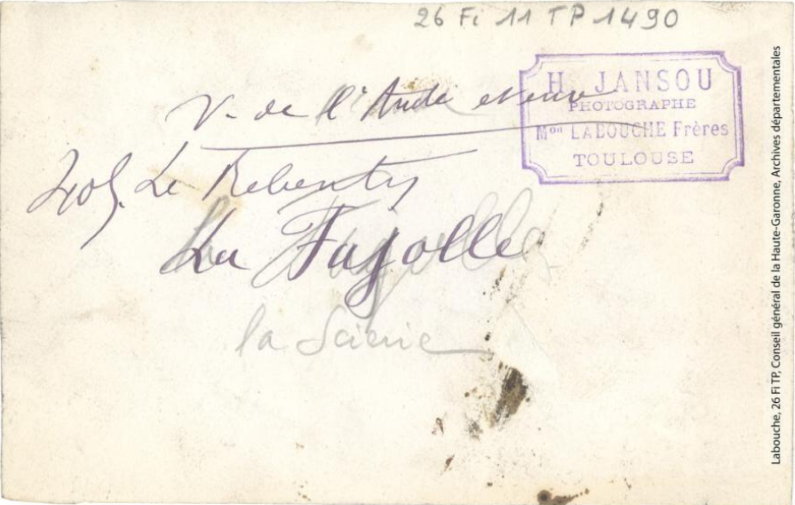 26 Fi 11 TP 1490
H. JANSOU
PHOTOGRAPHE
Mon LABOUCHE Frères
TOULOUSE
V. de l'Aude
405. Le Rebenty
La Fajolle
la Scierie
Labouche, 26 Fi TP, Conseil général de la Haute-Garonne, Archives départementales